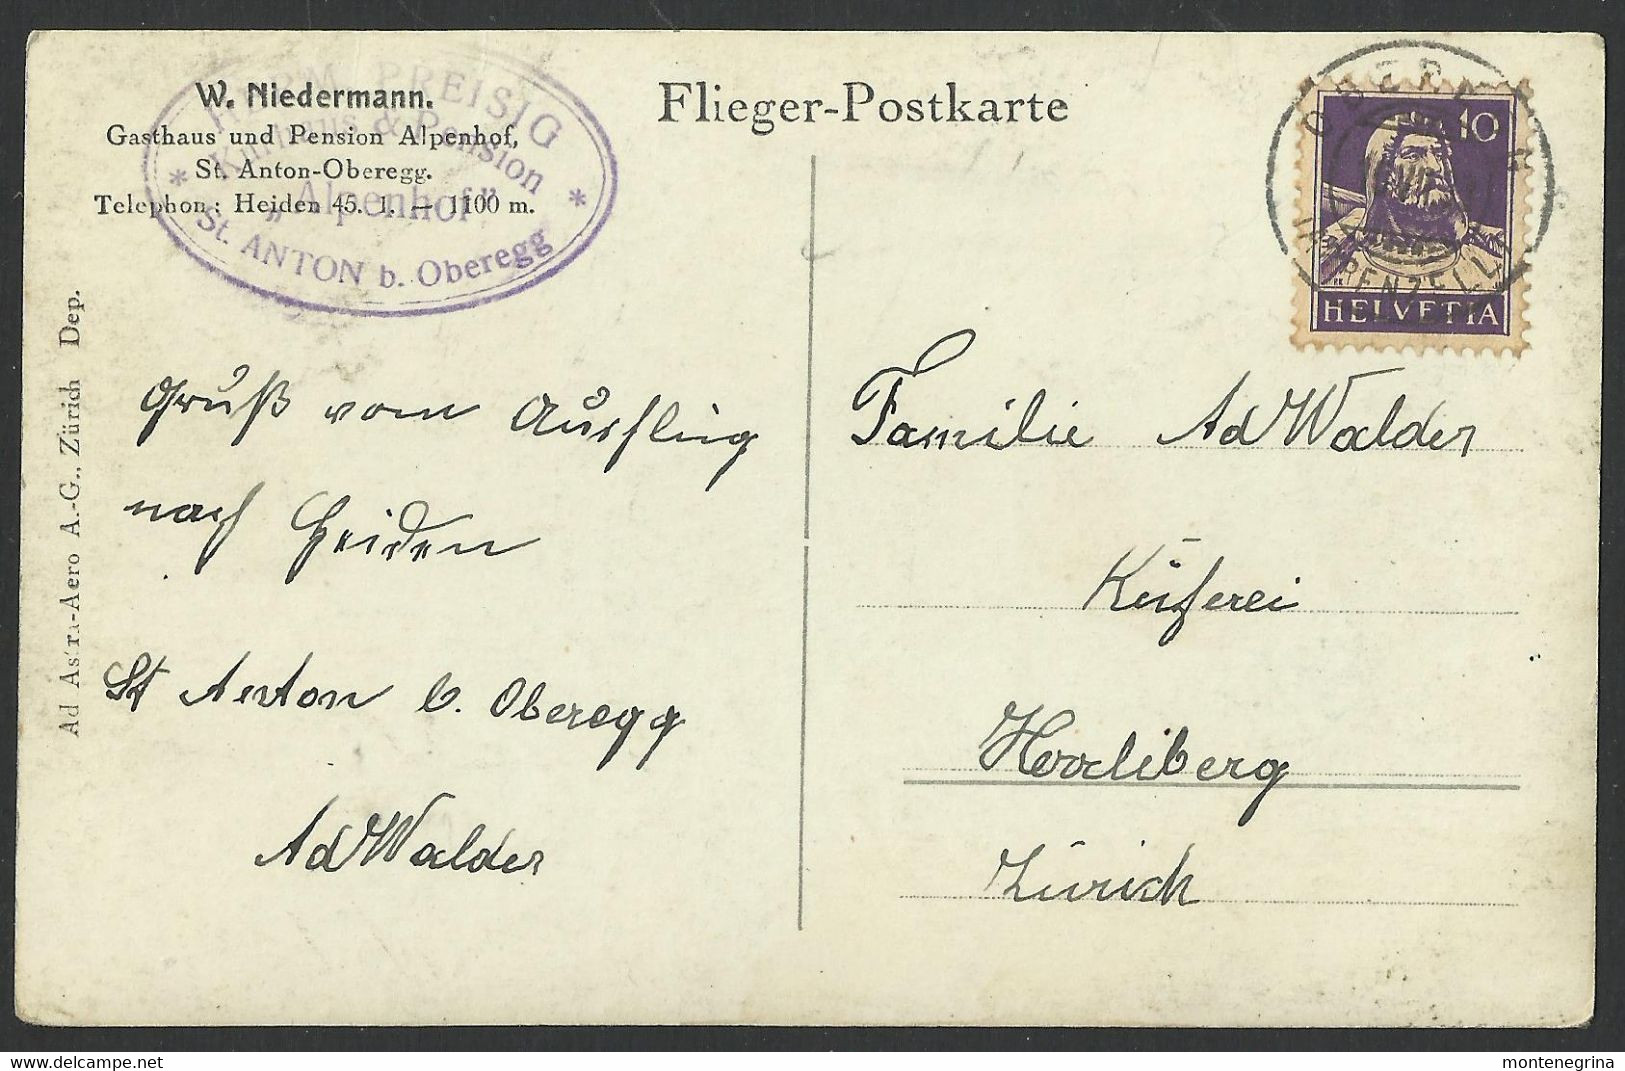 W. Niedermann.
Gasthaus und Pension Alpenhof,
St. Anton-Oberegg.
Telephon: Heiden 45. 1. — 1100 m.
HERM. PREISIG
Kurhaus & Pension
„Alpenhof”
* St. ANTON b. Oberegg *
Flieger-Postkarte
10
HELVETIA
OBEREGG
APPENZELL
Ad Astra-Aero A.-G., Zürich Dep.
Gruß vom Ausflug
nach Heiden
St Anton b. Oberegg
Ad Walder
Familie Ad Walder
Küferei
Herrliberg
Zürich
montenegrina